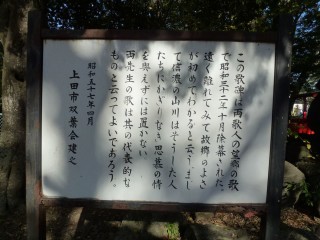 この歌碑は両歌人の望郷の歌
で昭和三十二年十月除幕された。
遠く離れてみて故郷のよさ
が初めてわかると云うまし
て信濃の山川はそうした人
たちにかぎりなき思慕の情
を與えずには置かない
両先生の歌は其の代表的な
ものと云ってよいであろう。
昭和五十七年四月
上田市双葉会建之